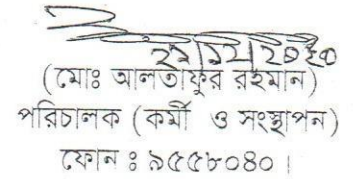 ২২/১২/২০১০
(মোঃ আলতাফুর রহমান)
পরিচালক (কর্মী ও সংস্থাপন)
ফোন ঃ ৯৫৫৮০৪০।